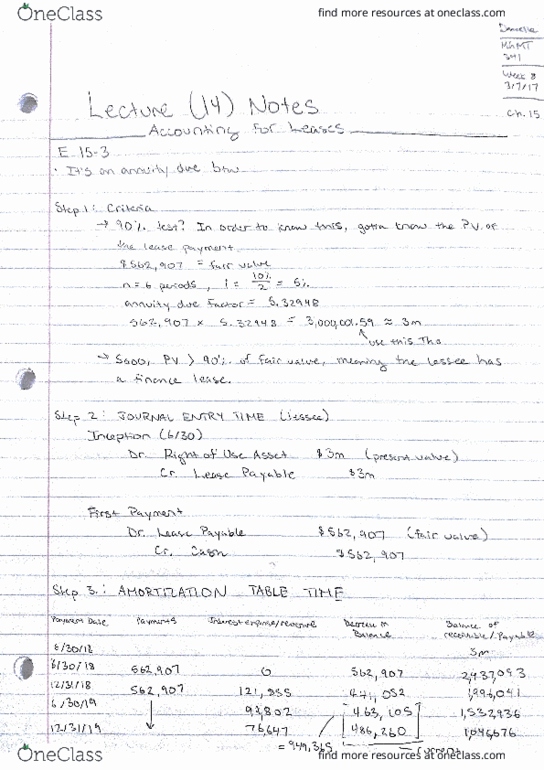 OneClass
find more resources at oneclass.com
Danielle
MGMT
341
Week 8
3/7/17
Ch. 15
Lecture (14) Notes
Accounting For Leases
E 15-3
• It's an annuity due btw
Step 1: Criteria
→ 90% test? In order to know this, gotta know the P.V. of
the lease payment
$562,907 = fair value
n = 6 periods, i = 10%/2 = 5%
annuity due factor = 5.32948
562,907 x 5.32948 = 3,000,001.59 ≈ 3m
↑ use this tho
→ Sooo, PV > 90% of fair value, meaning the lessee has
a finance lease.
Step 2: JOURNAL ENTRY TIME (lessee)
Inception (6/30)
Dr. Right of Use Asset $3m (present value)
Cr. Lease Payable $3m
First Payment
Dr. Lease Payable $562,907 (fair value)
Cr. Cash $562,907
Step 3: AMORTIZATION TABLE TIME
Payment Date Payments Interest expense/revenue Decrease in Balance Balance of receivable/Payable
6/30/18 3m
6/30/18 562,907 0 562,907 2,437,093
12/31/18 562,907 121,855 441,052 1,996,041
6/30/19 ↓ 99,802 [463,105 1,532,936
12/31/19 76,647 486,260] 1,046,676
= 949,365
OneClass
find more resources at oneclass.com